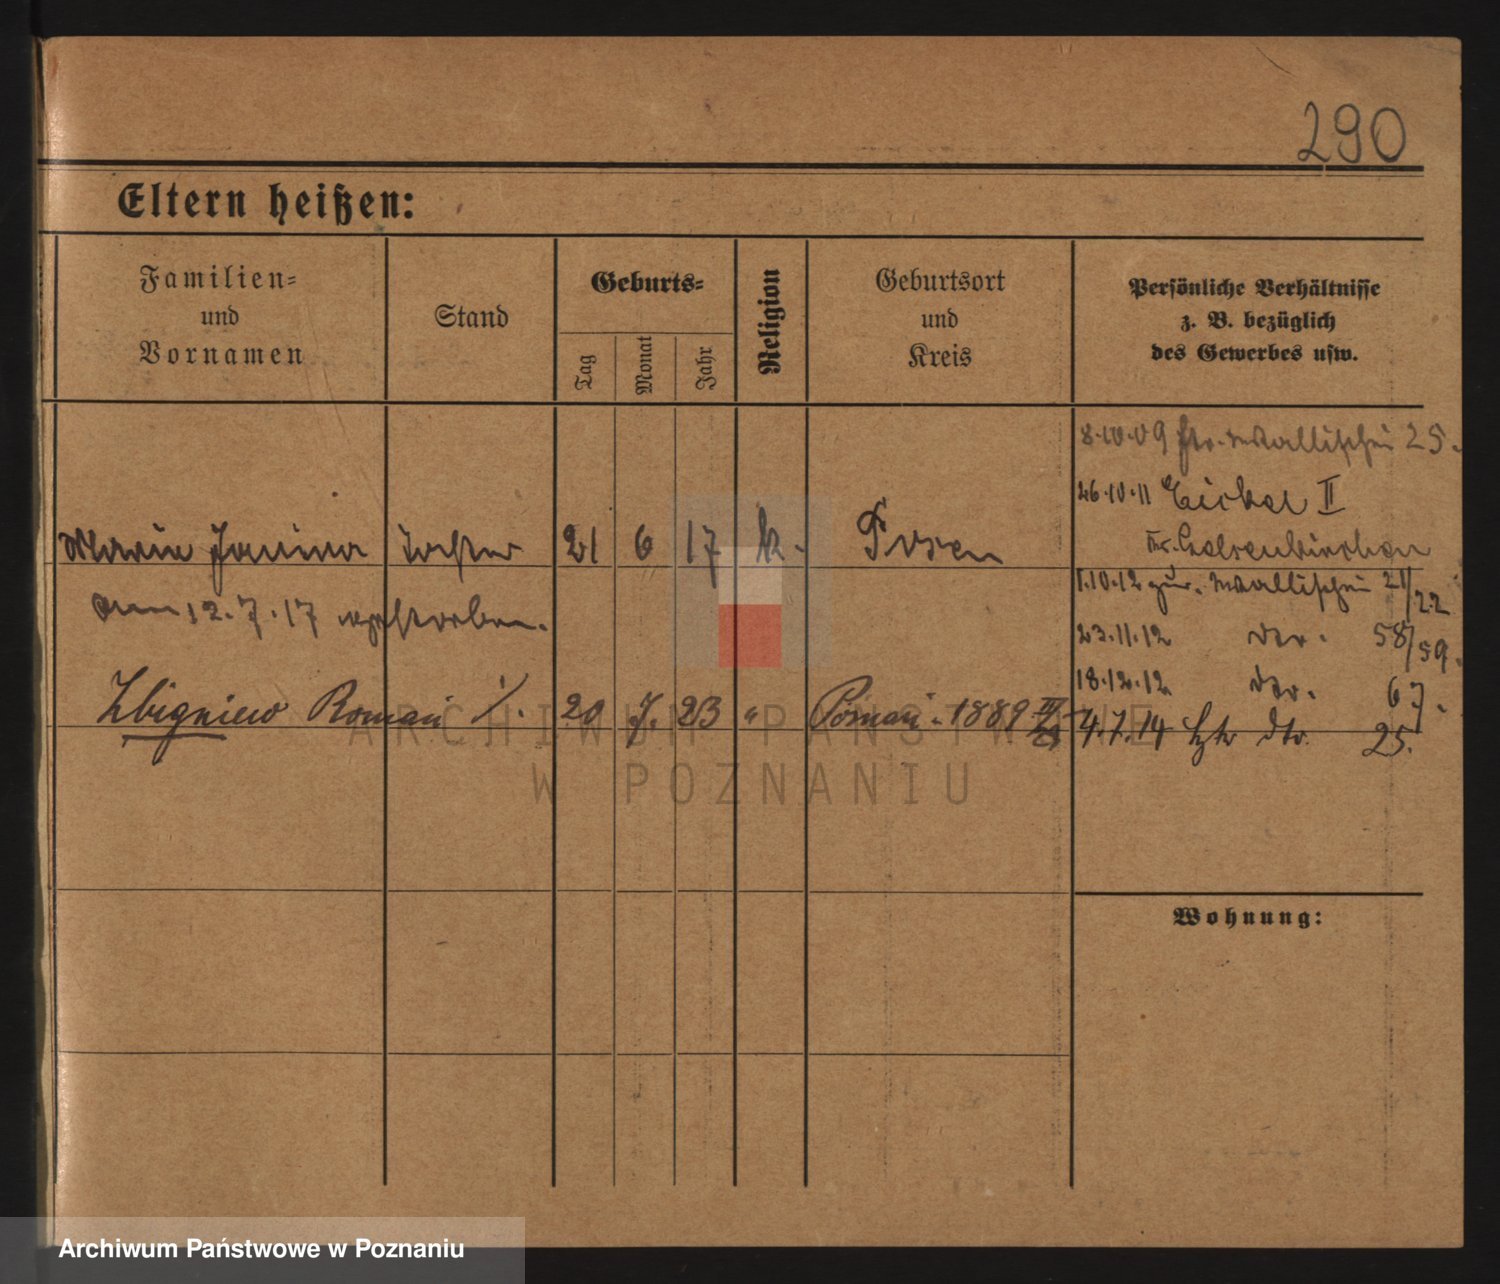 290
Eltern heißen:
Familien-
und
Vornamen
Stand
Geburts-
Tag
Monat
Jahr
Religion
Geburtsort
und
Kreis
Persönliche Verhältnisse
z. B. bezüglich
des Gewerbes usw.
8.10.09 Wallischei 25.
26.10.11 Eickel II
Kr. Gelsenkirchen
Maria Janina Tochter 21 6 17 k. Posen
1.10.12 zur. Wallischei 21/22
am 12.7.17 verstorben.
23.11.12 der. 58/59.
18.12.12 der. 67.
Zbigniew Roman 20 7. 23 " Poznań. 1889
4.7.14 dtr. 25.
Wohnung:
ARCHIWUM PAŃSTWOWE
W POZNANIU
Archiwum Państwowe w Poznaniu